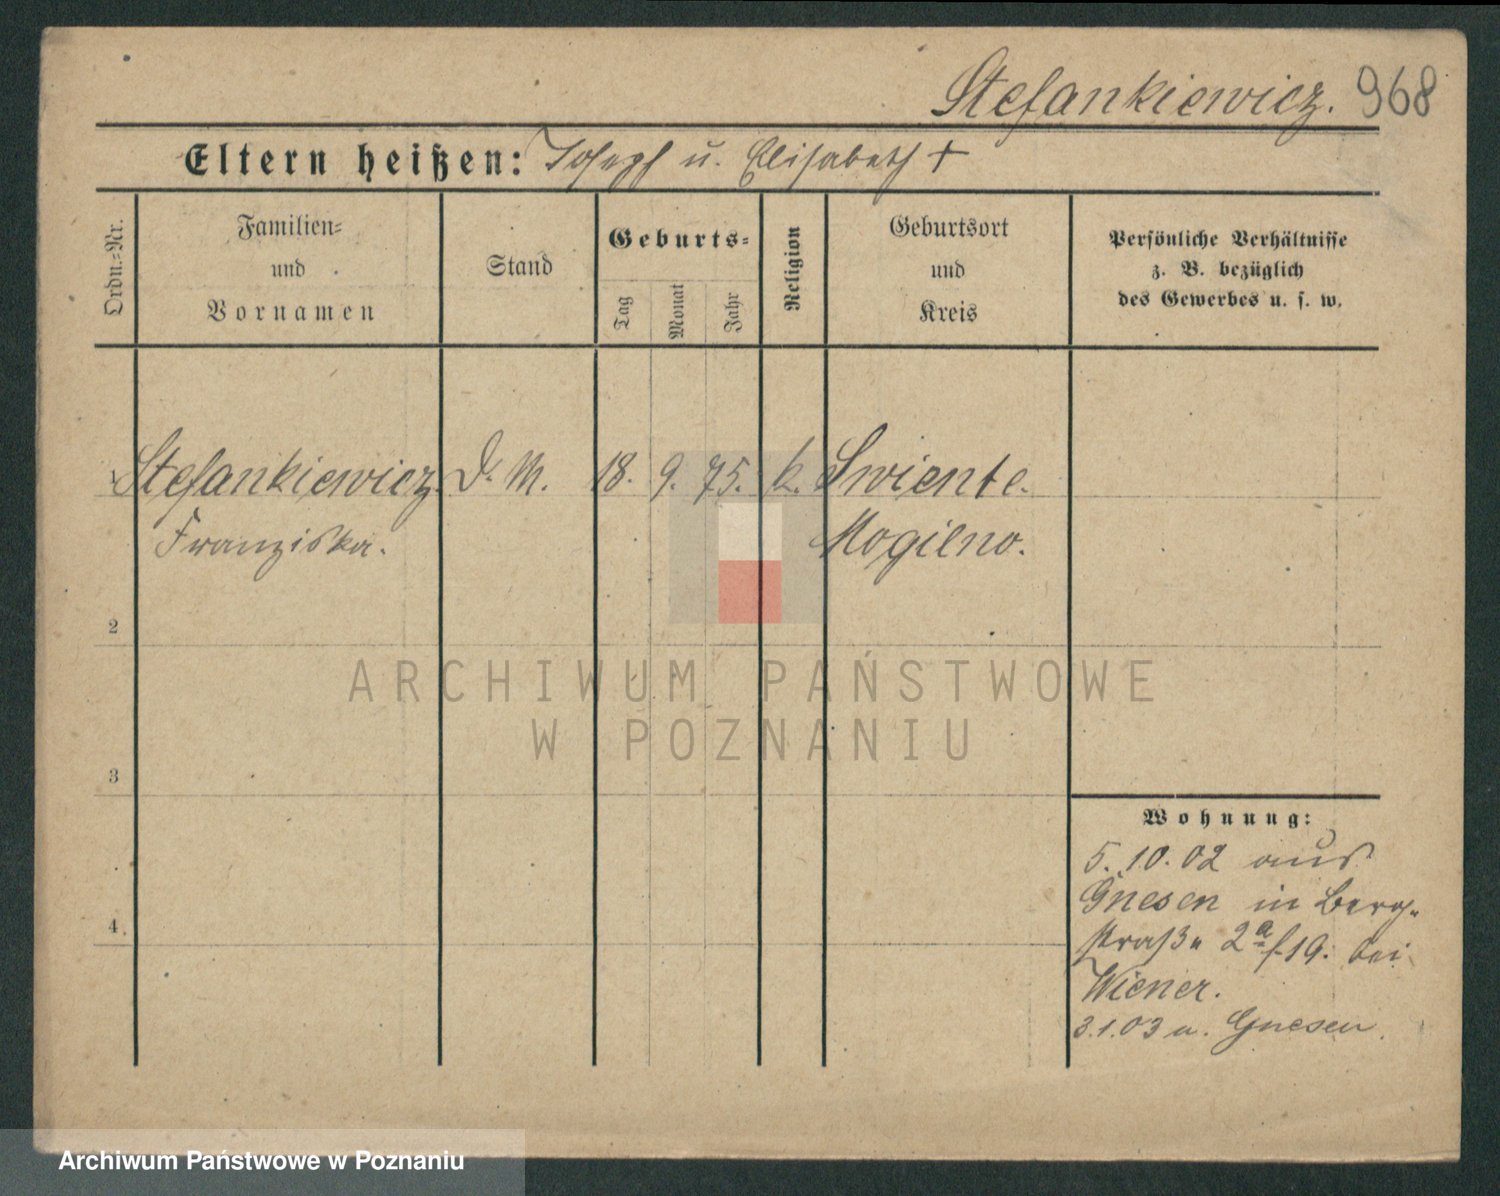 Stefankiewicz. 968
Eltern heißen: Joseph u. Elisabeth +
Ordn.=Nr.
Familien=
und
Vornamen
Stand
Geburts=
Tag
Monat
Jahr
Religion
Geburtsort
und
Kreis
Persönliche Verhältnisse
z. B. bezüglich
des Gewerbes u. s. w.
Stefankiewicz D. M. 18. 9. 75. k. Swiente.
Franziska. Mogilno.
2
3
4
ARCHIWUM PAŃSTWOWE
W POZNANIU
Wohnung:
5. 10. 02 aus
Gnesen in Berg-
straße 2a 19. bei
Wiener.
3.1.03 n. Gnesen
Archiwum Państwowe w Poznaniu